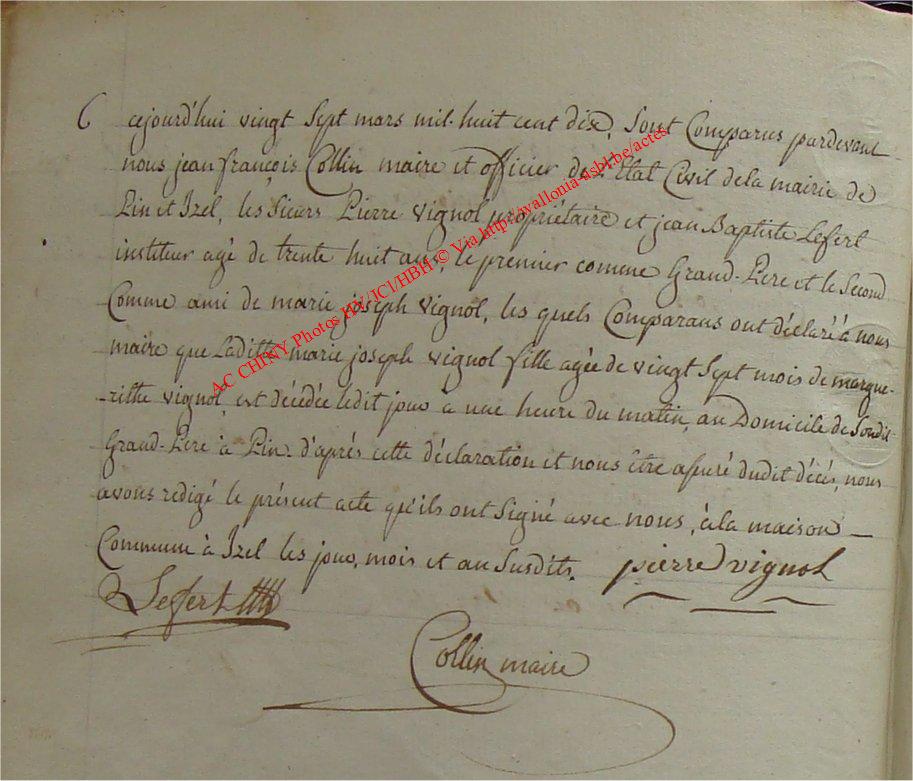 6 cejourd'hui vingt Sept mars mil huit cent dix, Sont Comparus pardevant
nous jean françois Collin maire et officier de l'Etat Civil de la mairie de
Pin et Izel, les Sieurs Pierre Vignol propriétaire et jean Baptiste Lefert
instituer agé de trente huit ans, le premier comme Grand-Pere et le Second
Comme ami de marie joseph Vignol, les quels Comparans ont déclaré à nous
maire que Laditte marie joseph Vignol fille agée de vingt Sept mois de margue-
-ritte Vignol, est décédée ledit jour à une heure du matin, au Domicile de Soudit
Grand-Pere à Pin. d'après cette déclaration et nous être assuré dudit décés, nous
avons redigé le présent acte qu'ils ont Signé avec nous, à la maison
Commune à Izel les jour, mois et an Susdits. pierre vignol
Lefert
Collin maire
AC CHINY Photos HV/JCI/HBH © Via http://wallonia-asbl.be/actes